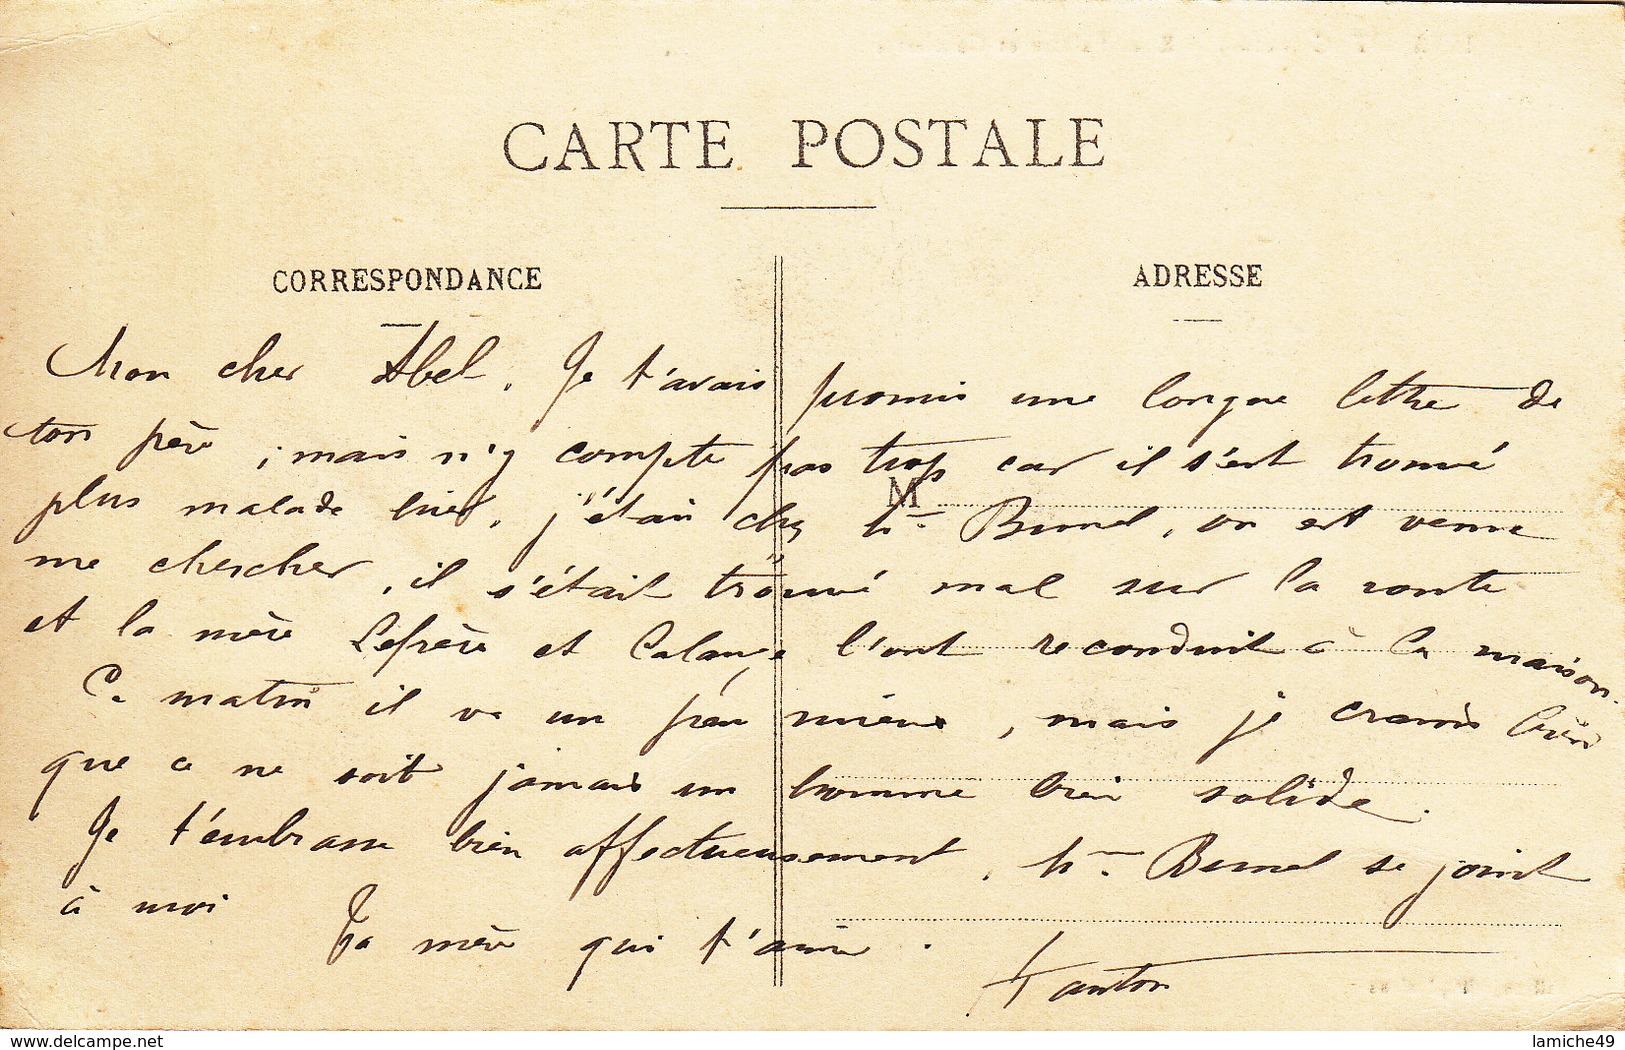 CARTE POSTALE
CORRESPONDANCE
ADRESSE
Mon cher Abel. Je t'avais promis une longue lettre de
ton père, mais n'y compte pas trop car il s'est trouvé
plus malade hier, j'étais chez Mme Brunel, on est venu
M
me chercher, il s'était trouvé mal sur la route
et la mère Lefrère et l'ont reconduit à la maison.
Ce matin il va un peu mieux, mais je crains bien
que ce ne soit jamais un homme bien solide.
Je t'embrasse bien affectueusement, Mme Brunel se joint
à moi
Ta mère qui t'aime.
www.delcampe.net
lamiche49